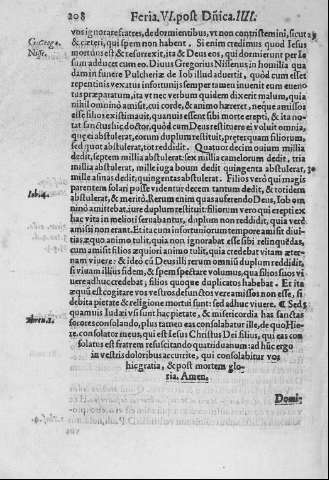 208 Feria.VI.post Dñica.IIII.
vos ignorare fratres, de dormientibus, vt non contristemini, sicut
& cæteri, qui spem non habent. Si enim credimus quod Iesus
mortuus est & resurrexit, ita & Deus eos, qui dormierunt per Ie
sum adducet cum eo. Diuus Gregorius Nissenus in homilia qua
dam in funere Pulcheriæ de Iob illud aduertit, quòd cum esset
repentinis vexatus infortunijs semper tamen inuenit eum euen
tus præparatum, ita vt nec verbum quidem dixerit malum, quia
nihil omnino amisit, cui corde, & animo hæreret, neque amissos
esse filios existimauit, quanuis essent sibi morte erepti, & ita no-
tat sanctus hic doctor, quòd cum Deus restituere ei voluit omnia,
quæ ei abstulerat, eorum duplum restituit, præterquam filiorum,
sed quot abstulerat, tot reddidit. Quatuor decim ouium millia
dedit, septem millia abstulerat: sex millia camelorum dedit, tria
millia abstulerat, mille iuga boum dedit quingenta abstulerat,
mille asinas dedit, quingentas abstulerat. Filios verò qui magis
parentem solari posse videntur decem tantum dedit, & totidem
abstulerat, & meritò. Rerum enim quas auferendo Deus, Iob om
nino amittebat, iure duplum restituit: filiorum vero qui erepti ex
hac vita in meliori seruabantur, duplum non reddidit, quia verè
amissi non erant. Et ita cum infortuniorum tempore amisit diui-
tias æquo animo tulit, quia non ignorabat esse sibi relinquẽdas,
cum amisit filios æquiori animo tulit, quia credebat vitam æter-
nam viuere: & ideò cũ Deus illi rerum omniũ duplum reddidit,
si viuam illius fidem, & spem spectare volumus, quia filios suos vi
uere adhuc credebat, filios quoque duplicatos habebat. Et ita
æquũ est cogitare vos vestros defunctos verè amissos non esse, si
debita pietate & religione mortui sunt: sed adhuc viuere. ¶ Sed
quamuis Iudæi vsi sunt hac pietate, & misericordia has sanctas
sorores consolando, plus tamen eas consolabatur ille, de quo Hie-
re. consolator meus, qui est Iesus Christus Dei filius, qui eas con
solatus est fratrem resuscitando quatriduanum: ad hũc ergo
in vestris doloribus accurrite, qui consolabitur vos
hic gratia, & post mortem glo-
ria. Amen.
Domi-
G. Grego.
Nisse.
Iob.4.